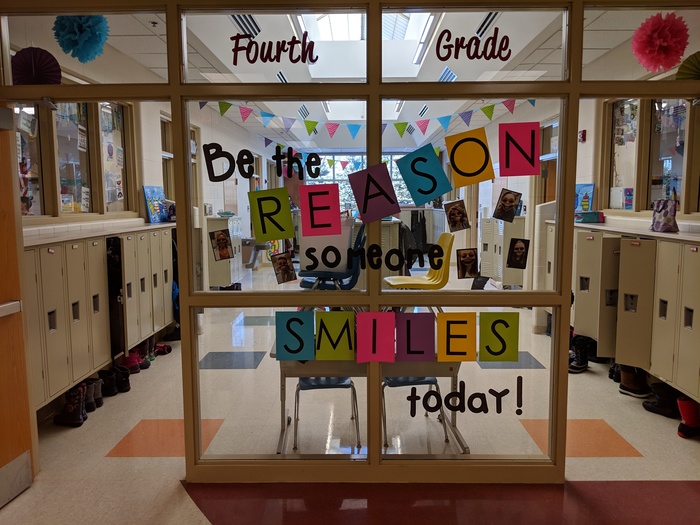 Fourth Grade
Be the
REASON
someone
SMILES
today!